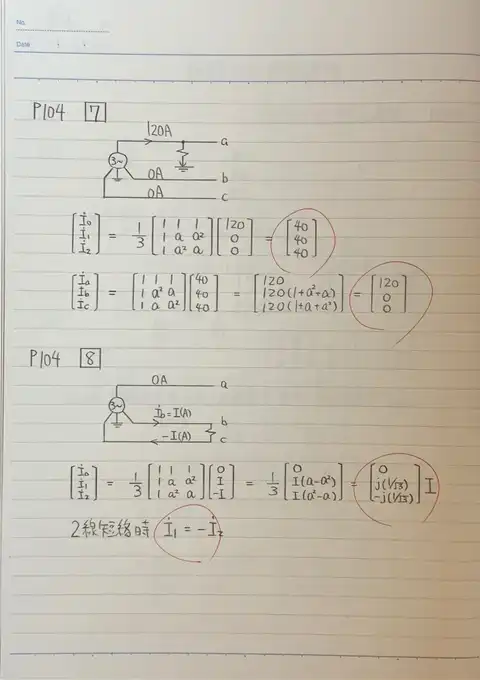 No.
Date
P104 7
120A
a
3~
0A
b
0A
c
[İ₀ İ₁ İ₂] = 1/3 [1 1 1; 1 a a²; 1 a² a] [120 0 0] = [40 40 40]
[İa İb İc] = [1 1 1; 1 a² a; 1 a a²] [40 40 40] = [120 120(1+a²+a) 120(1+a+a²)] = [120 0 0]
P104 8
0A
a
3~
İb=I(A)
b
-I(A)
c
[İ₀ İ₁ İ₂] = 1/3 [1 1 1; 1 a a²; 1 a² a] [0 I -I] = 1/3 [0 I(a-a²) I(a²-a)] = [0 j(1/√3) -j(1/√3)] I
2線短絡時 İ₁ = -İ₂